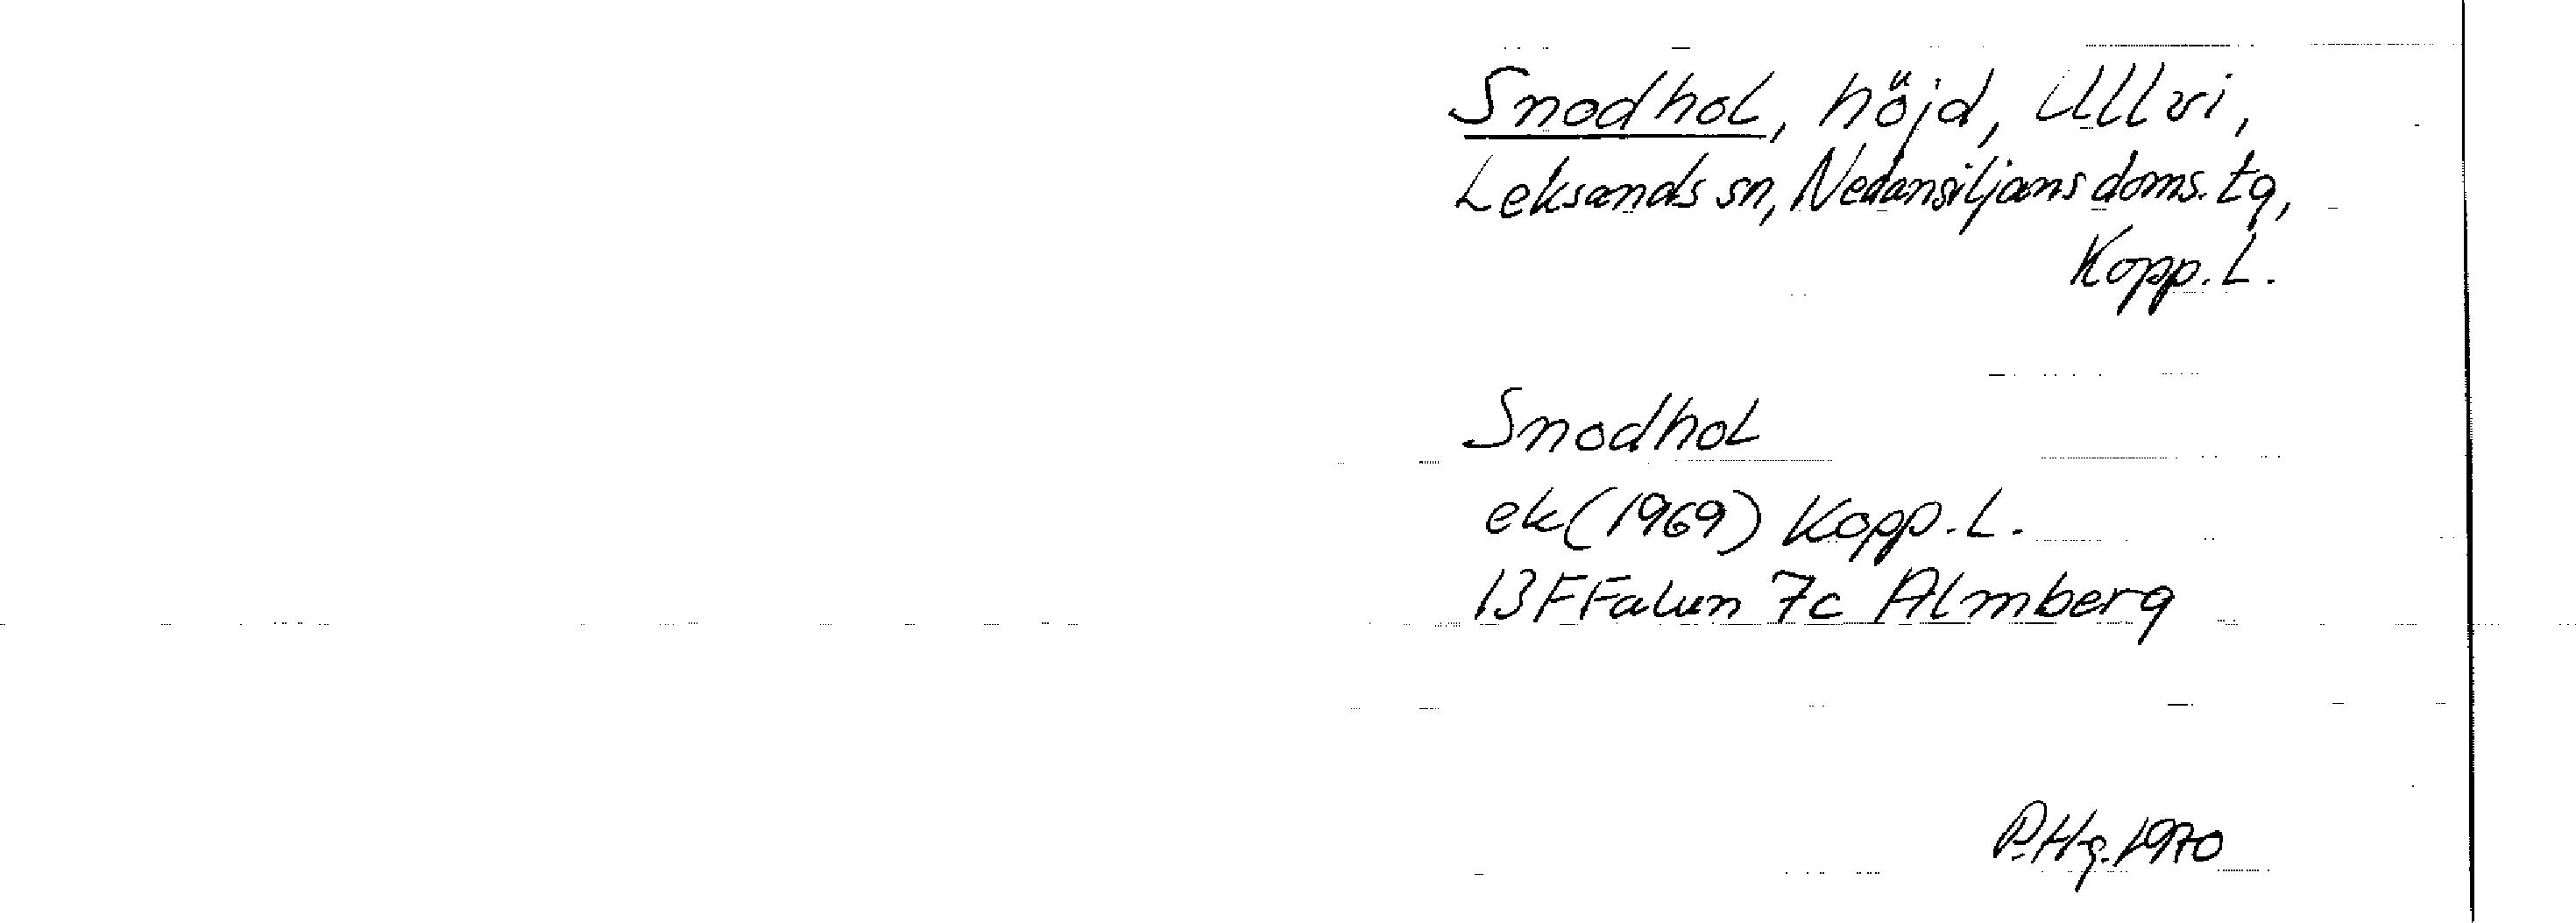 Snodhol, höjd, Ullvi,
Leksands sn, Nedansiljans doms. tg,
Kopp. L.
Snodhol
ek (1969) Kopp. L.
13F Falun 7c Almberg
P.Hg. 1970